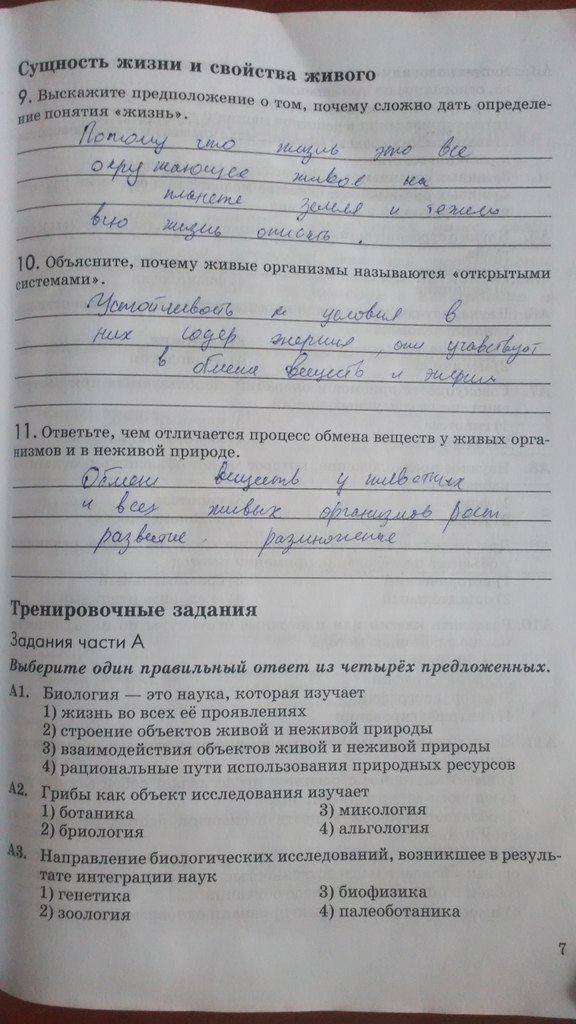 Сущность жизни и свойства живого
9. Выскажите предположение о том, почему сложно дать определе-
ние понятия «жизнь».
Потому что жизнь это все
окружающее живое на
планете земля и тежело
всю жизнь описать.
10. Объясните, почему живые организмы называются «открытыми
системами».
Устойливость к условия в
них содер энергия, они учавствуют
в обмене веществ и энергии
11. Ответьте, чем отличается процесс обмена веществ у живых орга-
низмов и в неживой природе.
Обмен веществ у животных
и всех живых организмов рост
развитие размножение
Тренировочные задания
Задания части А
Выберите один правильный ответ из четырёх предложенных.
А1. Биология — это наука, которая изучает
1) жизнь во всех её проявлениях
2) строение объектов живой и неживой природы
3) взаимодействия объектов живой и неживой природы
4) рациональные пути использования природных ресурсов
А2. Грибы как объект исследования изучает
1) ботаника 3) микология
2) бриология 4) альгология
А3. Направление биологических исследований, возникшее в резуль-
тате интеграции наук
1) генетика 3) биофизика
2) зоология 4) палеоботаника
7